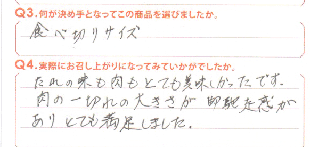 Q3.何が決め手となってこの商品を選びましたか。
食べ切りサイズ
Q4.実際にお召し上がりになってみていかがでしたか。
たれの味も肉もとても美味しかったです。
肉の一切れの大きさが 馳走感が
ありとても満足しました.